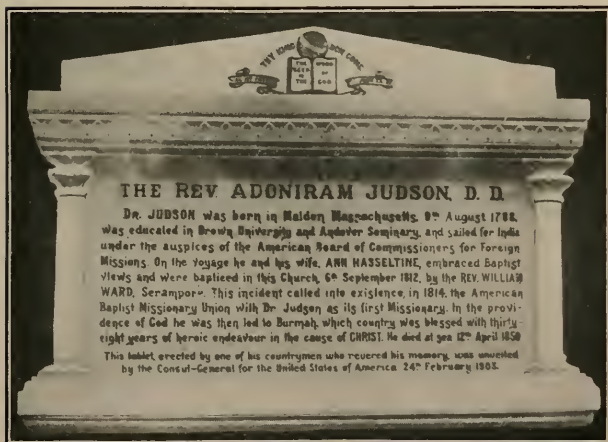 THY KINGDOM COME
THE SEED IS THE WORD OF GOD
THE REV. ADONIRAM JUDSON, D. D.
DR. JUDSON was born in Malden Massachusetts, 9TH August 1788,
was educated in Brown University and Andover Seminary, and sailed for India
under the auspices of the American Board of Commissioners for Foreign
Missions. On the voyage he and his wife, ANN HASSELTINE, embraced Baptist
views and were baptized in this Church, 6TH September 1812, by the REV. WILLIAM
WARD, Serampore. This incident called into existence, in 1814, the American
Baptist Missionary Union with Dr Judson as its first Missionary. In the provi-
dence of God he was then led to Burmah, which country was blessed with thirty-
eight years of heroic endeavour in the cause of CHRIST. He died at sea 12TH April 1850
This tablet, erected by one of his countrymen who revered his memory, was unveiled
by the Consul-General for the United States of America 24TH February 1905.